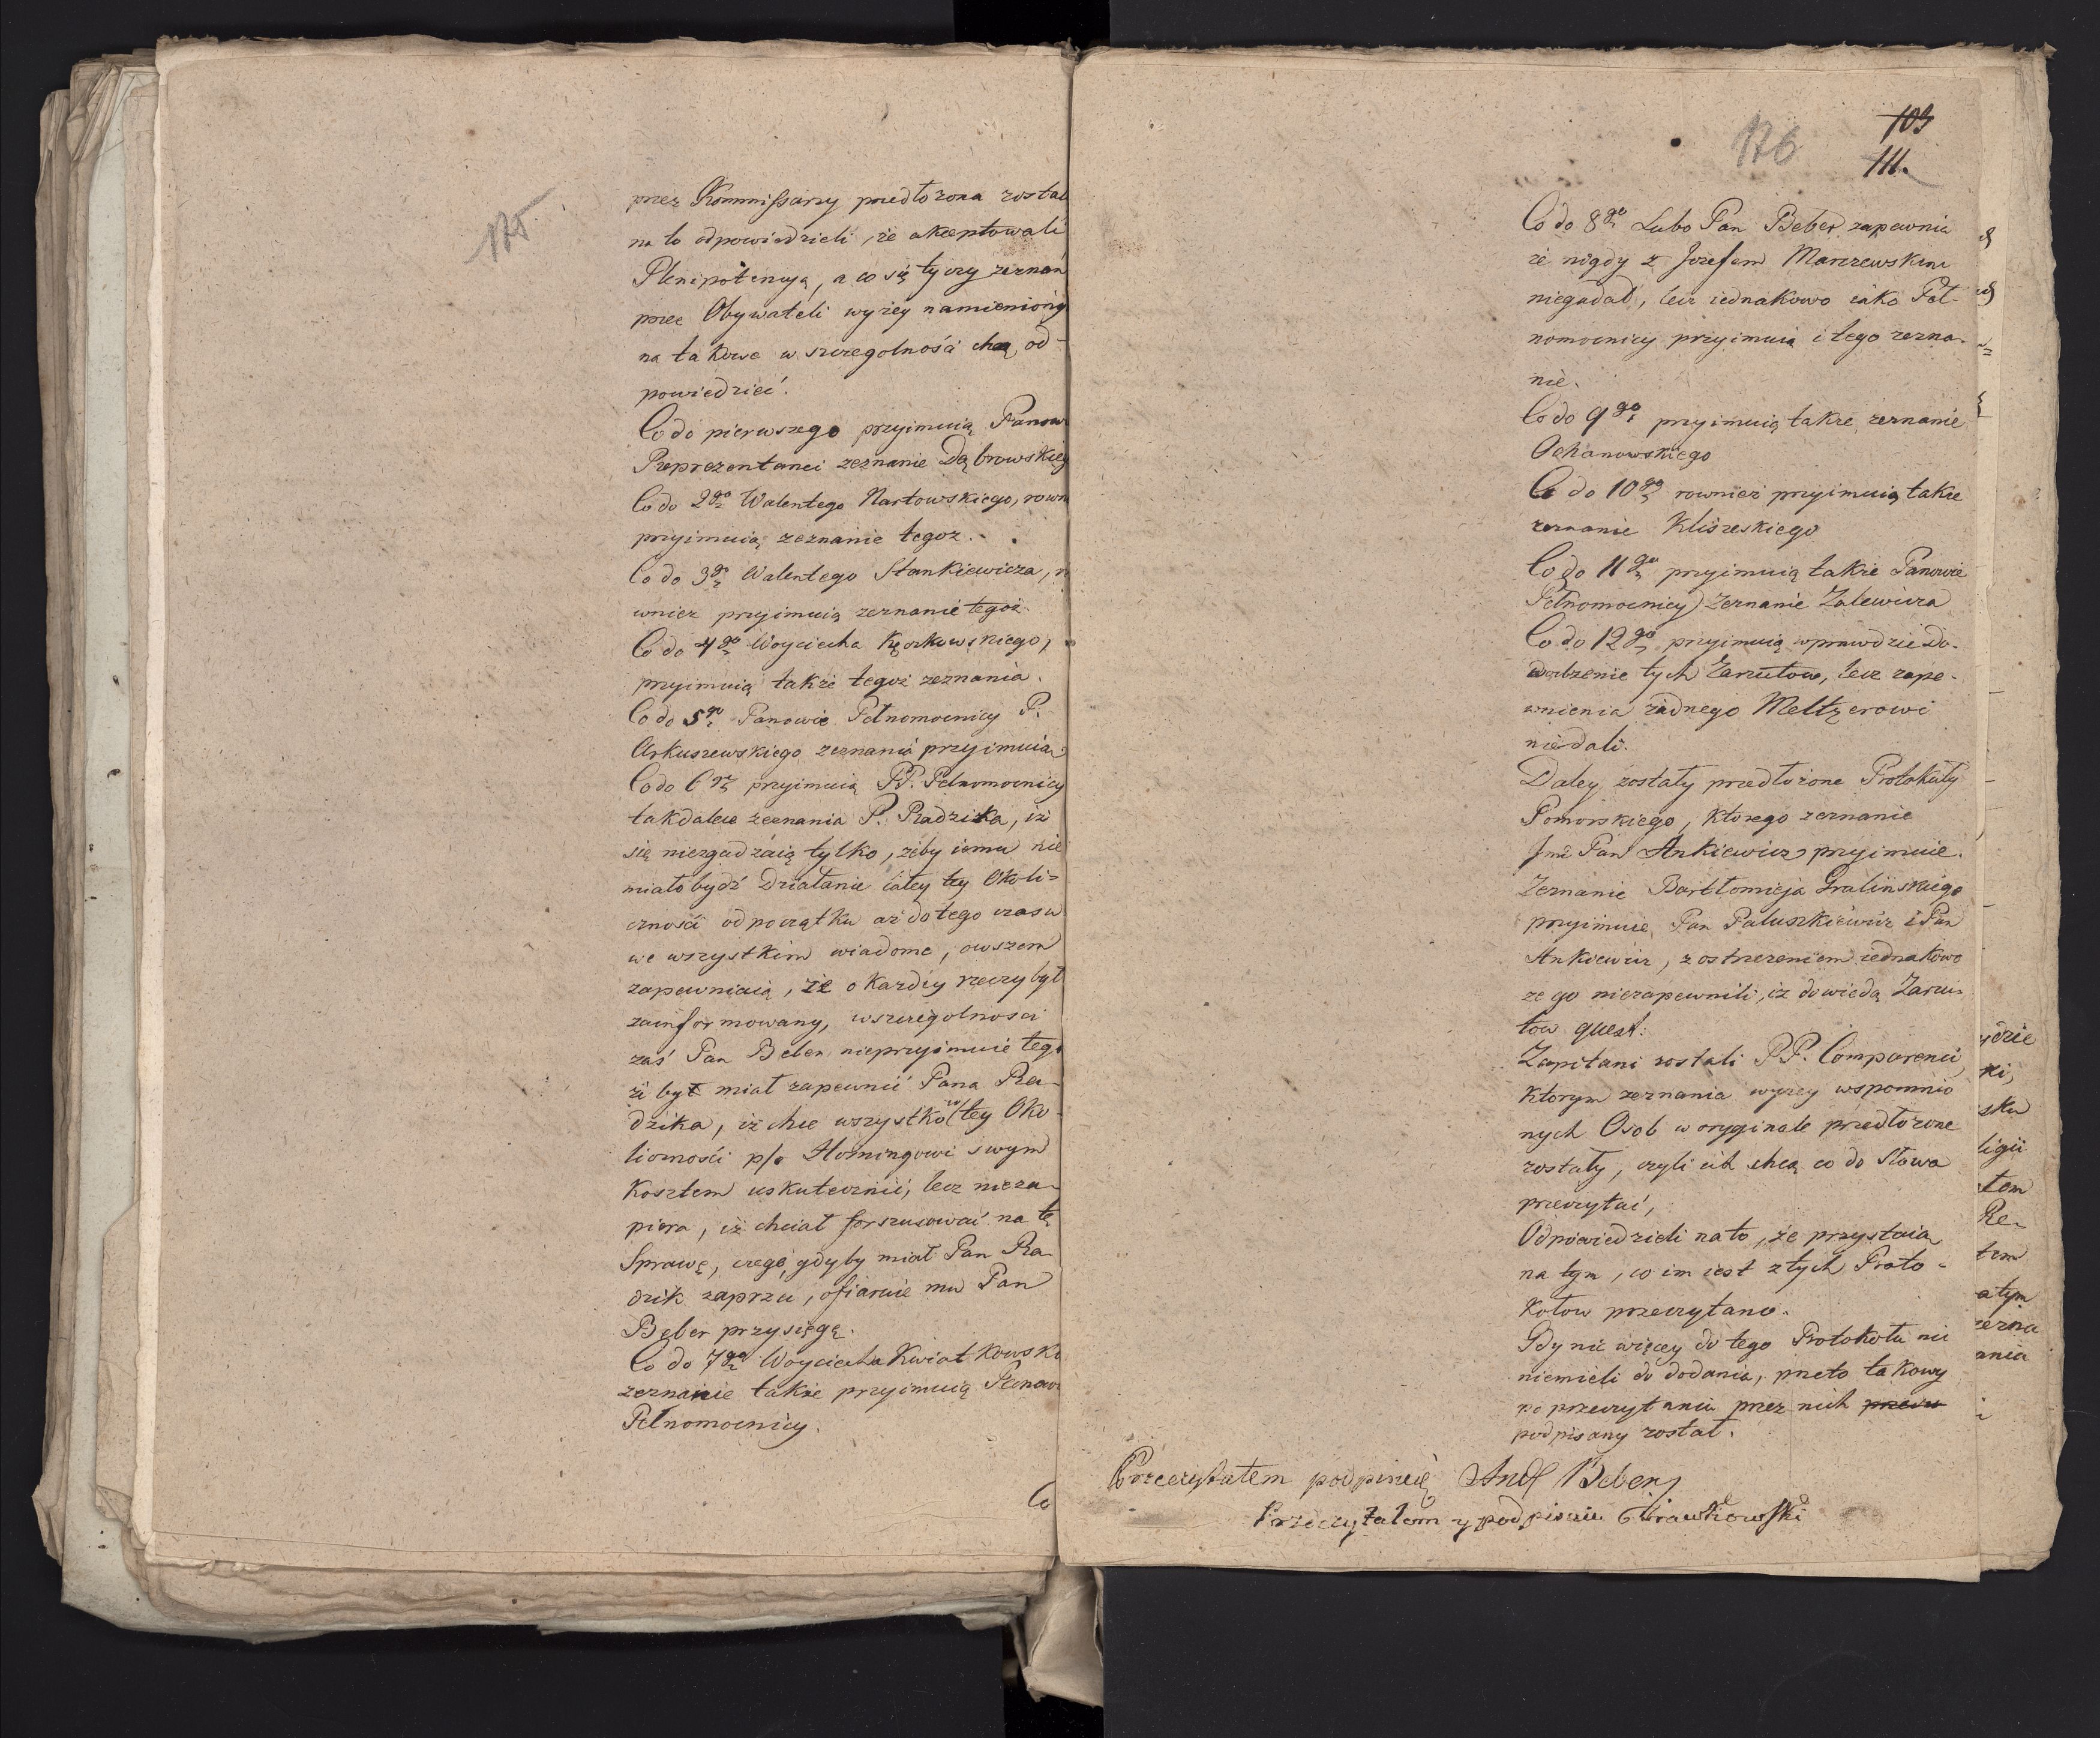 175
przez Kommissarzy przedłożona został
na to odpowiedzieli, że akceptowali
Plenipotencyą, a co się tyczy zeznań
przez Obywateli wyżey namieniony
na takowe w szczegolności chcą od-
powiedzieć.
Co do pierwszego przyimuią Panow
Reprezentanci zeznanie Dąbrowskieg
Co do 2go Walentego Nartowskiego, rown
przyimuią zeznanie tegoz.
Co do 3go Walentego Stankiewicza, r
wniez przyimuią zeznanie tegoż
Co do 4go Woyciecha Kęszkowskiego,
przyimuią także tegoż zeznania.
Co do 5go Panowie Pełnomocnicy P.
Arkuszewskiego zeznania przyimuią
Co do 6go przyimuią PP. Pełnomocnicy
takdalece zeznania P. Radzika, iż
się niezgadzaią tylko, żeby iemu nie
miało bydź Działanie całey tey Okoli-
cznosći od początku aż do tego czasu
we wszystkim wiadome, owszem
zapewniaią, że o każdéy rzeczy był
zainformowany, wszczegolnosci
zaś Pan Beber nieprzyimuie tego
żi by miał zapewnić Pana Ra-
dzika, iż chce wszystko w tey Oko
licznośći p/o Horningowi swym
Kosztem uskutecznić, lecz nieza-
piera, iż chciał forszusować na tę
Sprawę, czego, gdyby miał Pan Ra-
dzik zaprzeć, ofiaruie mu Pan
Beber przysięgę.
Co do 7go Woyciecha Kwiatkowski
zeznanie także przyimuią Panow
Pełnomocnicy.
Co
176
103
111.
Co do 8go Lubo Pan Beber zapewnia
że nigdy z Jozefem Marczewskim
niegadał, lecz iednakowo iako Peł-
nomocnicy przyimuią i tego zezna-
nie.
Co do 9go przyimuią także zeznanie
Ochanowskiego
Co do 10go rownież przyimuią także
zeznanie Kliszeskiego
Co do 11go przyimuią także Panowie
Pełnomocnicy Zeznanie Zalewicza
Co do 12go przyimuią wprawdzie Do-
wodzenie tych Zarzutow, lecz zape-
wnienia żadnego Meltzerowi
niedali.
Daley zostały przedłożone Protokuły
Pomorskiego, którego zeznanie
Jmć Pan Ankiewicz przyimuie.
Zeznanie Bartłomieja Gralinskiego
przyimuie Pan Paluszkiewicz i Pan
Ankiewicz, z ostrzeżeniem iednakowo
ze go niezapewnili, iż dowiedą Zarzu-
tow quest:
Zapitani zostali PP. Comparenci,
Ktorym zeznania wyżey wspomnio
nych Osob w oryginale przedłożone
zostały, czyli ich chcą co do Słowa
przeczytać,
Odpowiedzieli na to, że przystaią
na tym, co im iest z tych Proto-
kołow przeczytano.
Gdy nic więcey do tego Protokołu nic
niemieli do dodania, przeto takowy
po przeczytaniu przez nich
podpisany został.
Przeczytałem podpiszę Andr Beber
Przeczytalem y podpisuie Girawkowski